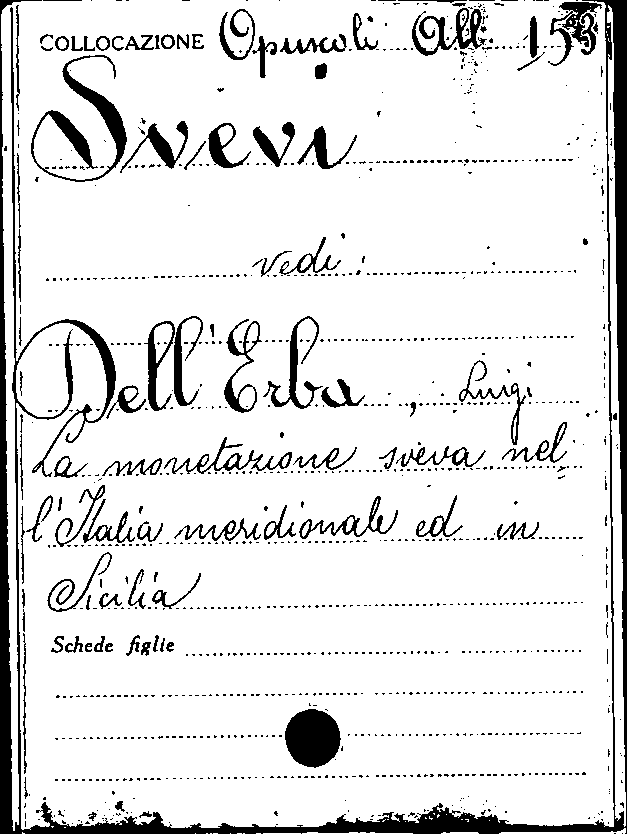 COLLOCAZIONE Opuscoli All. 153
Svevi
vedi:
Dell'Erba, Luigi
La monetazione sveva nel-
l'Italia meridionale ed in
Sicilia
Schede figlie